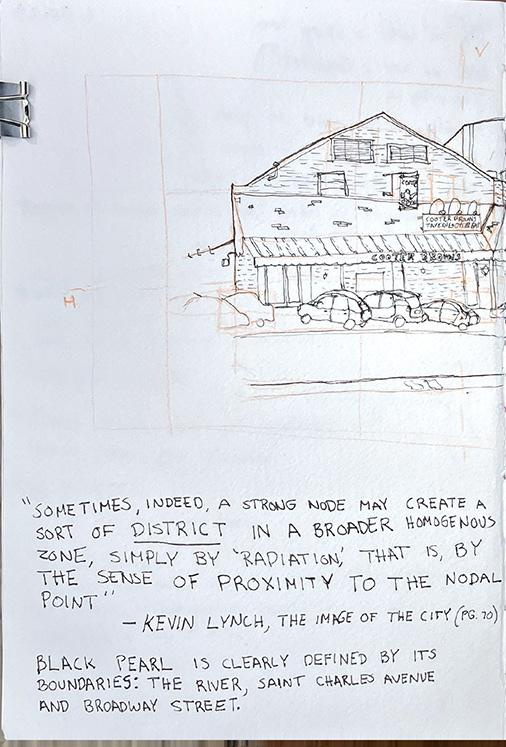 V
COOTER BROWNS
COOTER BROWNS
H
"SOMETIMES, INDEED, A STRONG NODE MAY CREATE A
SORT OF DISTRICT IN A BROADER HOMOGENOUS
ZONE, SIMPLY BY 'RADIATION,' THAT IS, BY
THE SENSE OF PROXIMITY TO THE NODAL
POINT"
– KEVIN LYNCH, THE IMAGE OF THE CITY (PG. 70)
BLACK PEARL IS CLEARLY DEFINED BY ITS
BOUNDARIES: THE RIVER, SAINT CHARLES AVENUE
AND BROADWAY STREET.